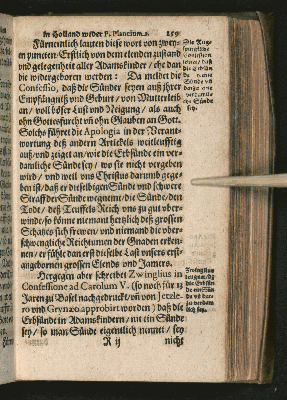 in Holland wider P. Plancium. 159
Fürnemlich lauten diese wort von zwey-
en puncten: Erstlich von dem elenden zustand
und gelegenheit aller Adamskinder / ehe dan
die widergeboren werden: Da meldet die
Confessio, daß die Sünder seyen auß ihrer
Empfängnüß und Geburt / von Mutterleib
an / voll böser Lust und Neigung / als auch
ohn Gottesfurcht vñ ohn Glauben an Gott.
Solchs führet die Apologia in der Verant-
wortung deß andern Artickels weitleufftig
auß / und zeiget an / wie die Erbsünde ein ver-
damliche Sünde sey / wo sie nicht vergeben
wird / und weil uns Christus darumb gege-
ben ist / daß er dieselbigen Sünde und schwere
Straff der Sünde wegneme / die Sünde / den
Tode / deß Teuffels Reich uns zu gut uber-
winde / so könne niemant hertzlich deß grossen
Schatzes sich frewen / und niemand die uber-
schwengliche Reichtumen der Gnaden erken-
nen / er fühle dan erst dieselbe Last unsers erst-
angebornen grossen Elends und Jamers.
Hergegen aber schreibet Zwinglius in
Confessione ad Carolum V. (so noch für 13
Jaren zu Basel nachgedruckt / vñ von Jetzle-
ro und Grynæo approbirt worden /) daß die
Erbsünde in Adamskindern / nit ein Sünde
sey / so man Sünde eigentlich nennet / sey
R ij nicht
Die Aug-
spurgische
Confession
lehret / daß
die Erbsün-
de
Sünde
und ein
verdamli-
che Sünde
sey.
Zwinglius
daß
die Erbsün-
de
sey.